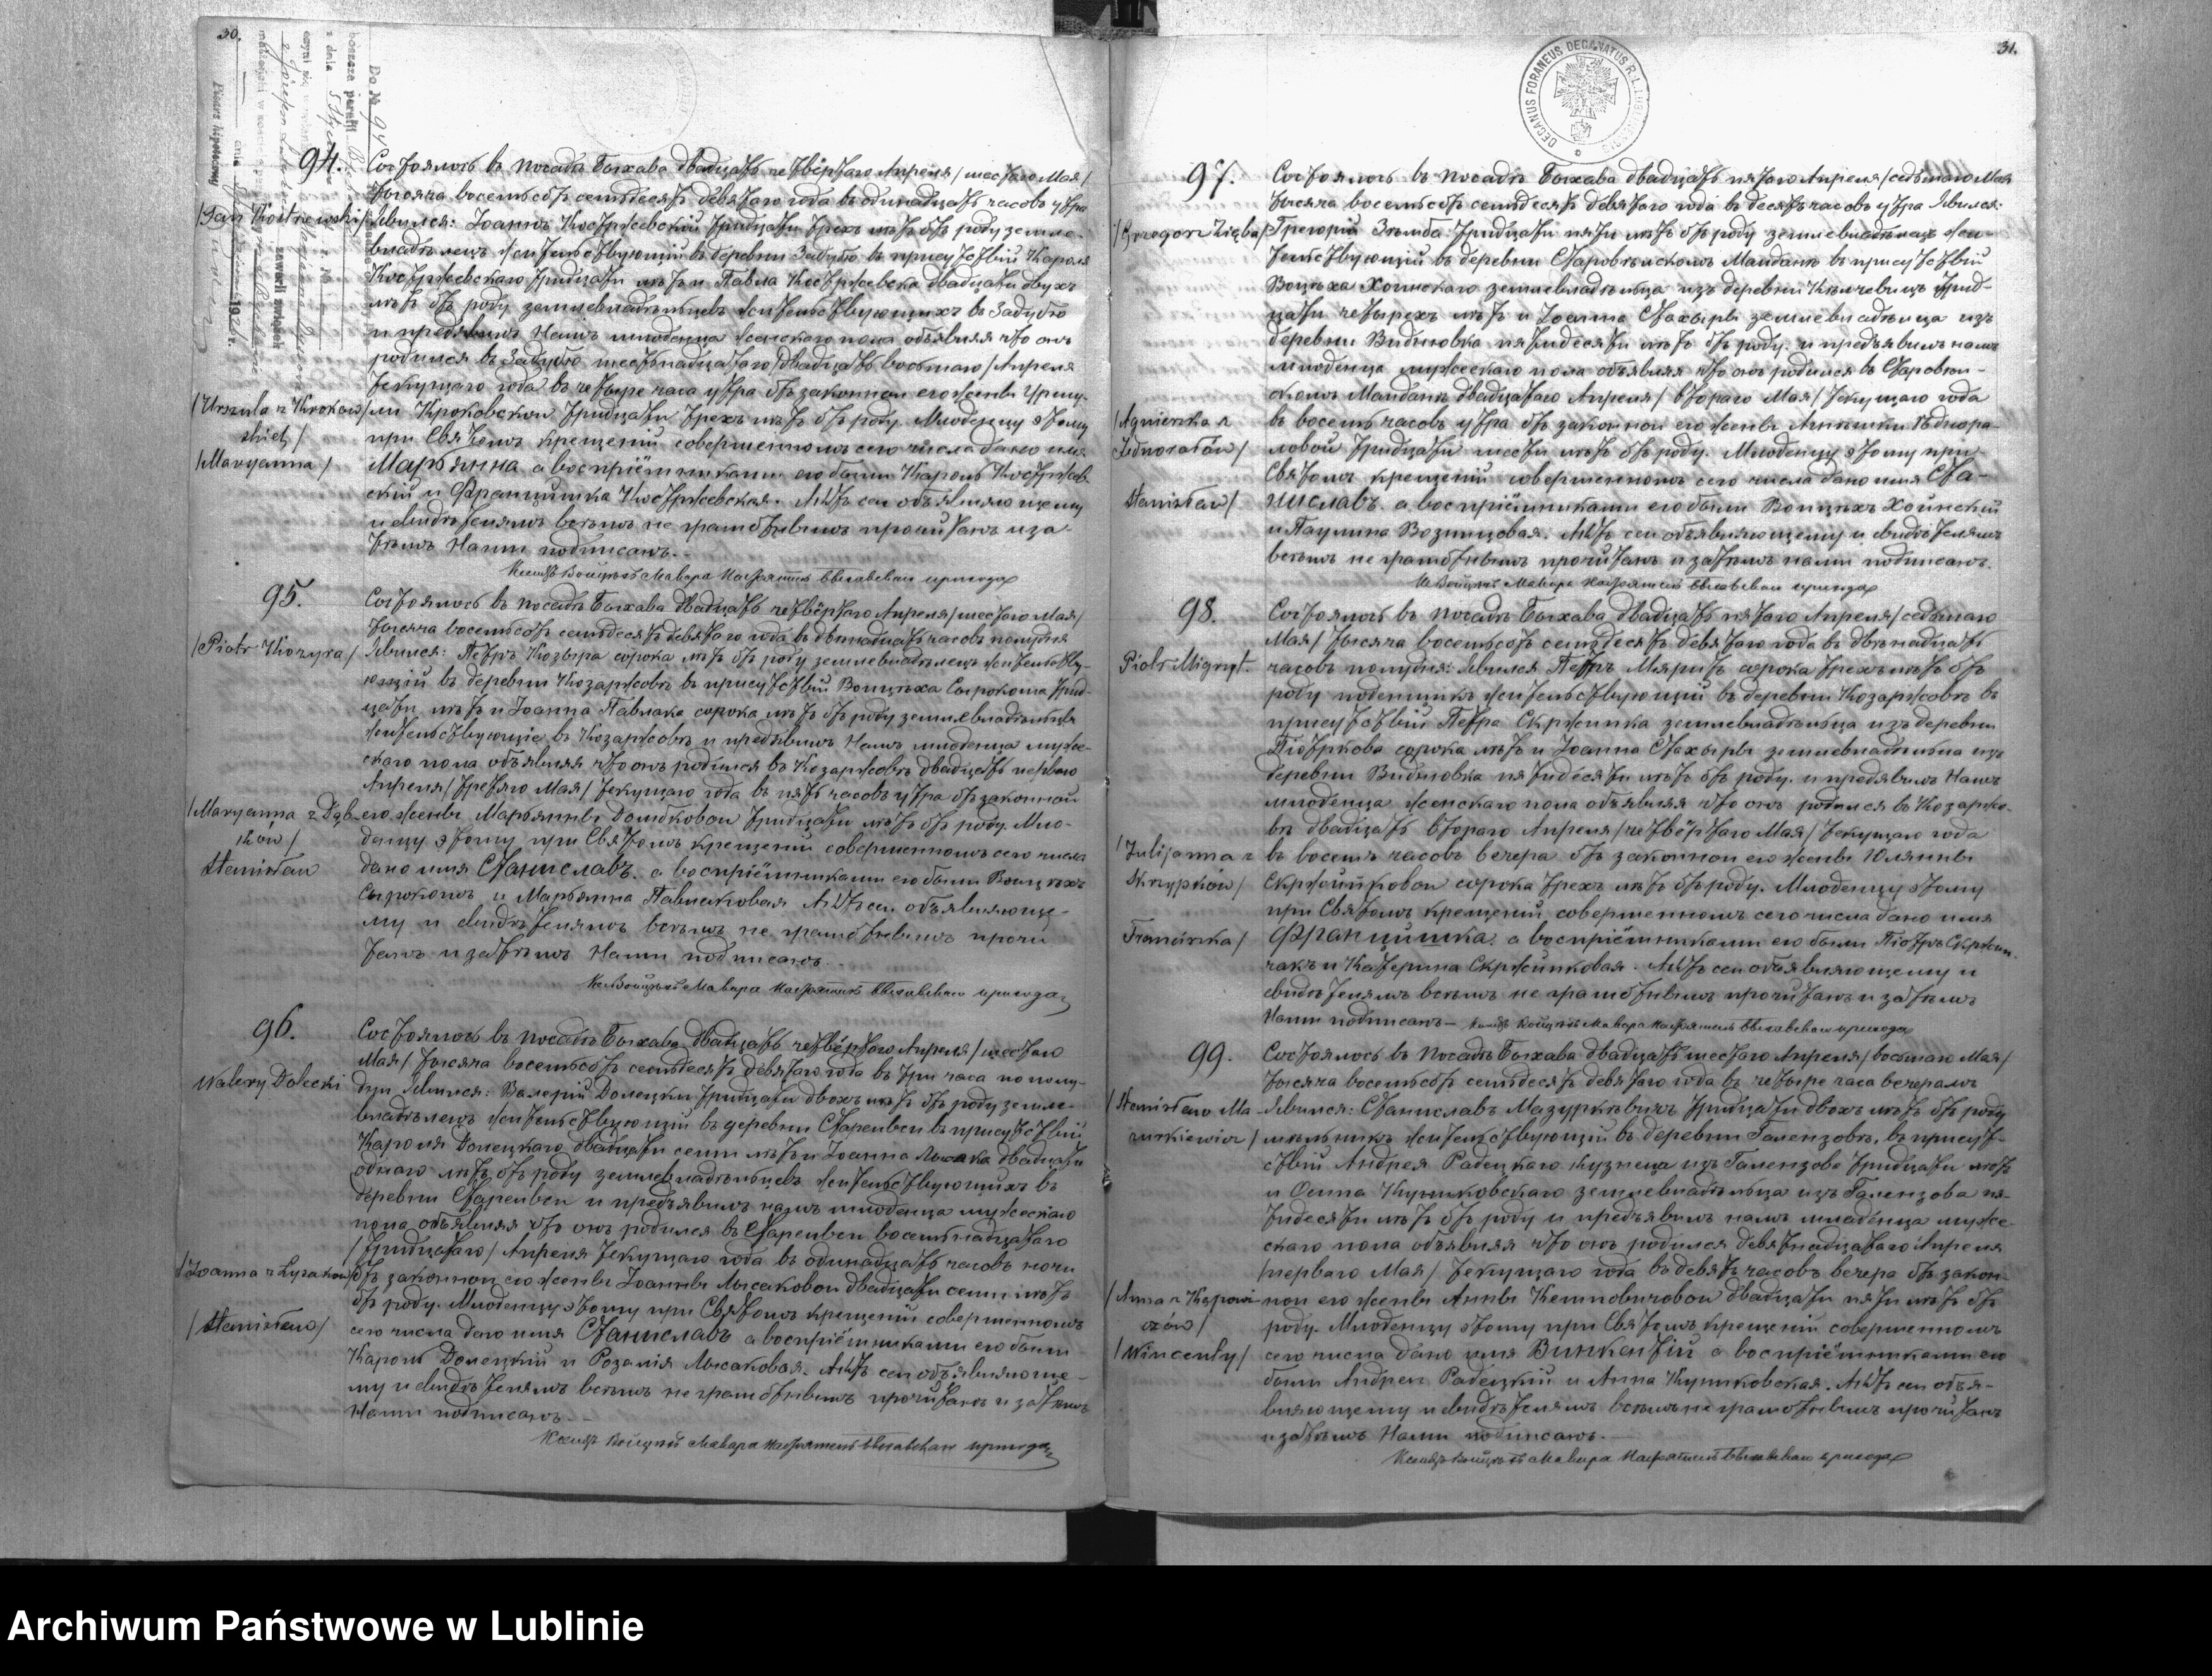 30.
94.
Состоялось въ посадѣ Быхава двадцать четвёртаго Апрѣля /шестаго Мая/
тысяча восемьсотъ семьдесятъ девятаго года въ одинадцать часовъ утра
/Jan Kostrzewski/
Явился: Іоаннъ Костржевскій тридцати трехъ лѣтъ отъ роду земле-
владѣлецъ жительствующій въ деревни Задубю въ присутствіи Кароля
Костржевскаго тридцати лѣтъ и Павла Костржевска двадцати двухъ
лѣтъ отъ роду землевладѣльцевъ жительствующихъ въ Задубю
и предявилъ Намъ младенца женскаго пола объявляя что онъ
родился въ Задубю шестьнадцатаго /двадцать восьмаго/ Апрѣля
текущаго года въ четыре часа утра отъ законной его жены Уршу-
/Urszula z Krokow/
skich/
ли Кроковской тридцати трехъ лѣтъ отъ роду. Младенцу этому
при Святомъ крещеніи совершенномъ сего числа дано имя
/Maryanna/
Марьянна а воспріёмниками его были Кароль Костржев-
скій и Францишка Костржевская. Актъ сей объявляющему
и свидѣтелямъ всѣмъ не грамотнымъ прочитанъ и за-
тѣмъ Нами подписанъ.
Ксендзъ Войцѣхъ Мавара Настоятель Быхавскаго прихода
95.
Состоялось въ посадѣ Быхава двадцать четвёртаго Апрѣля /шестаго Мая/
тысяча восемьсотъ семьдесятъ девятаго года въ двѣнадцать часовъ полудня
/Piotr Kozyra/
Явился: Петръ Козыра сорока лѣтъ отъ роду землевладѣлецъ жительству-
ющій въ деревни Козаржовѣ въ присутствіи Войцѣха Сырокоша трид-
цати лѣтъ и Іоанна Павлака сорока лѣтъ отъ роду землевладѣльцы
жительствующіе въ Козаржовѣ и предявилъ Намъ младенца муже-
скаго пола объявляя что онъ родился въ Козаржовѣ двадцать перваго
Апрѣля /третяго Мая/ текущаго года въ пять часовъ утра отъ законной
/Maryanna z Dąb-
ków/
его жены Марьянны Домбковой тридцати лѣтъ отъ роду. Мла-
денцу этому при Святомъ крещеніи совершенномъ сего числа
Stanisław
дано имя Станиславъ. а воспріёмниками его были Войцѣхъ
Сырокошъ и Марьянна Павлаковая Актъ сей объявляюще-
му и свидѣтелямъ всѣмъ не грамотнымъ прочи-
танъ и затѣмъ Нами подписанъ.
Кс. Войцѣхъ Мавара Настоятель Быхавскаго прихода
96.
Состоялось въ посадѣ Быхава двадцать четвёртаго Апрѣля /шестаго
Мая/ тысяча восемьсотъ семьдесятъ девятаго года въ три часа по полу-
Walery Dolecki
дни Явился: Валерій Долецкій тридцати двохъ лѣтъ отъ роду земле-
владѣлецъ жительствующій въ деревни Старейвси въ присутствіи
Кароля Долецкаго двадцати семи лѣтъ и Іоанна Лысака двадцати
одного лѣтъ отъ роду землевладѣльцевъ жительствующихъ въ
деревни Старейвси и предъявилъ намъ младенца мужескаго
пола объявляя что онъ родился въ Старейвси восемьнадцатаго
/тридцатаго/ Апрѣля текущаго года въ одинадцать часовъ ночи
/Joanna z Łysaków/
отъ законной его жены Іоанны Лысаковой двадцати семи лѣтъ
отъ роду. Младенцу этому при Святомъ крещеніи совершенномъ
/Stanisław/
сего числа дано имя Станиславъ а воспріёмниками его были
Кароль Долецкій и Розалія Лысаковая. Актъ сей объявляюще-
му и свидѣтелямъ всѣмъ не грамотнымъ прочитанъ и затѣмъ
Нами подписанъ.
Ксендзъ Войцѣхъ Мавара Настоятель Быхавскаго прихода
31.
DECANUS FORANEUS DECANATUS R. L. LUBLINENSIS
97.
Состоялось въ посадѣ Быхава двадцать пятаго Апрѣля /седьмаго Мая
тысяча восемьсотъ семьдесятъ девятаго года въ десять часовъ утра Явился:
/Grzegorz Zięba/
Грегорій Зѣмба тридцати пяти лѣтъ отъ роду землевладѣлецъ жи-
тельствующій въ деревни Старовѣйскомъ Майданѣ въ присутствіи
Войцѣха Хоинскаго землевладѣльца изъ деревни Кѣлчевицъ трид-
цати четырехъ лѣтъ и Іоанна Стахыры землевладѣльца изъ
деревни Видніовка пятидесяти лѣтъ отъ роду. и предъявилъ намъ
младенца мужескаго пола объявляя что онъ родился въ Старовѣй-
скомъ Майданѣ двадцатаго Апрѣля /втораго Мая/ текущаго года
/Agnieszka z
Jednorałów/
въ восемь часовъ утра отъ законной его жены Агнѣшки Едно-ра-
ловой тридцати шести лѣтъ отъ роду. Младенцу этому при
Святомъ крещеніи совершенномъ сего числа дано имя Ста-
Stanisław/
ниславъ. а воспріёмниками его были Войцѣхъ Хоинскій
и Паулина Возницовая. Актъ сей объявляющему и свидѣтелямъ
всѣмъ не грамотнымъ прочитанъ и затѣмъ нами подписанъ.
Кс Войцѣхъ Мавара Настоятель Быхавскаго прихода
98.
Состоялось въ посадѣ Быхава двадцать пятаго Апрѣля /седьмаго
Мая/ тысяча восемьсотъ семьдесятъ девятаго года въ двѣнадцать
Piotr Migryt-
часовъ полудня: Явился Петръ Мягритъ сорока трехъ лѣтъ отъ
роду поденщикъ жительствующій въ деревни Козаржовѣ въ
присутствіи Петра Скржипка землевладѣльца изъ деревни
Піотркова сорока лѣтъ и Іоанна Стахыры землевладѣльца изъ
деревни Видніовка пятидесяти лѣтъ отъ роду. и предявилъ Намъ
младенца женскаго пола объявляя что онъ родился въ Козаржо-
вѣ двадцать втораго Апрѣля /четвёртаго Мая/ текущаго года
/Julijanna z
Skrzypków/
въ восемь часовъ вечера отъ законной его жены Юліянны
Скржипковой сорока трехъ лѣтъ отъ роду. Младенцу этому
при Святомъ крещеніи совершенномъ сего числа дано имя
Franciszka/
Францишка. а воспріёмниками его были Піотръ Скржип-
чакъ и Катерина Скржипковая. Актъ сей объявляющему и
свидѣтелямъ всѣмъ не грамотнымъ прочитанъ и затѣмъ
Нами подписанъ — Ксендзъ Войцѣхъ Мавара Настоятель Быхавскаго прихода
99.
Состоялось въ посадѣ Быхава двадцать шестаго Апрѣля /восьмаго Мая/
тысяча восемьсотъ семьдесятъ девятаго года въ четыре часа вечеромъ
/Stanisław Ma-
zurkiewicz/
Явился: Станиславъ Мазуркѣвичъ тридцати двохъ лѣтъ отъ роду
мѣльникъ жительствующій въ деревни Галензовѣ, въ присут-
ствіи Андрея Радецкаго кузнеца изъ Галензова тридцати лѣтъ
и Осипа Куниковскаго землевладѣльца изъ Галензова пя-
тидесяти лѣтъ отъ роду и предъявилъ намъ младенца муже-
скаго пола объявляя что онъ родился девятнадцатаго Апрѣля
/перваго Мая/ текущаго года въ девять часовъ вечера отъ закон-
/Anna z Kępowi-
czów/
ной его жены Анны Кемповичовой двадцати пяти лѣтъ отъ
роду. Младенцу этому при Святомъ крещеніи совершенномъ
/Wincenty/
сего числа дано имя Винкентій а воспріёмниками его
были Андрей Радецкій и Анна Куниковская. Актъ сей объя-
вляющему и свидѣтелямъ всѣмъ не грамотнымъ прочитанъ
и затѣмъ Нами подписанъ.
Ксендзъ Войцѣхъ Мавара Настоятель Быхавскаго прихода
Archiwum Państwowe w Lublinie